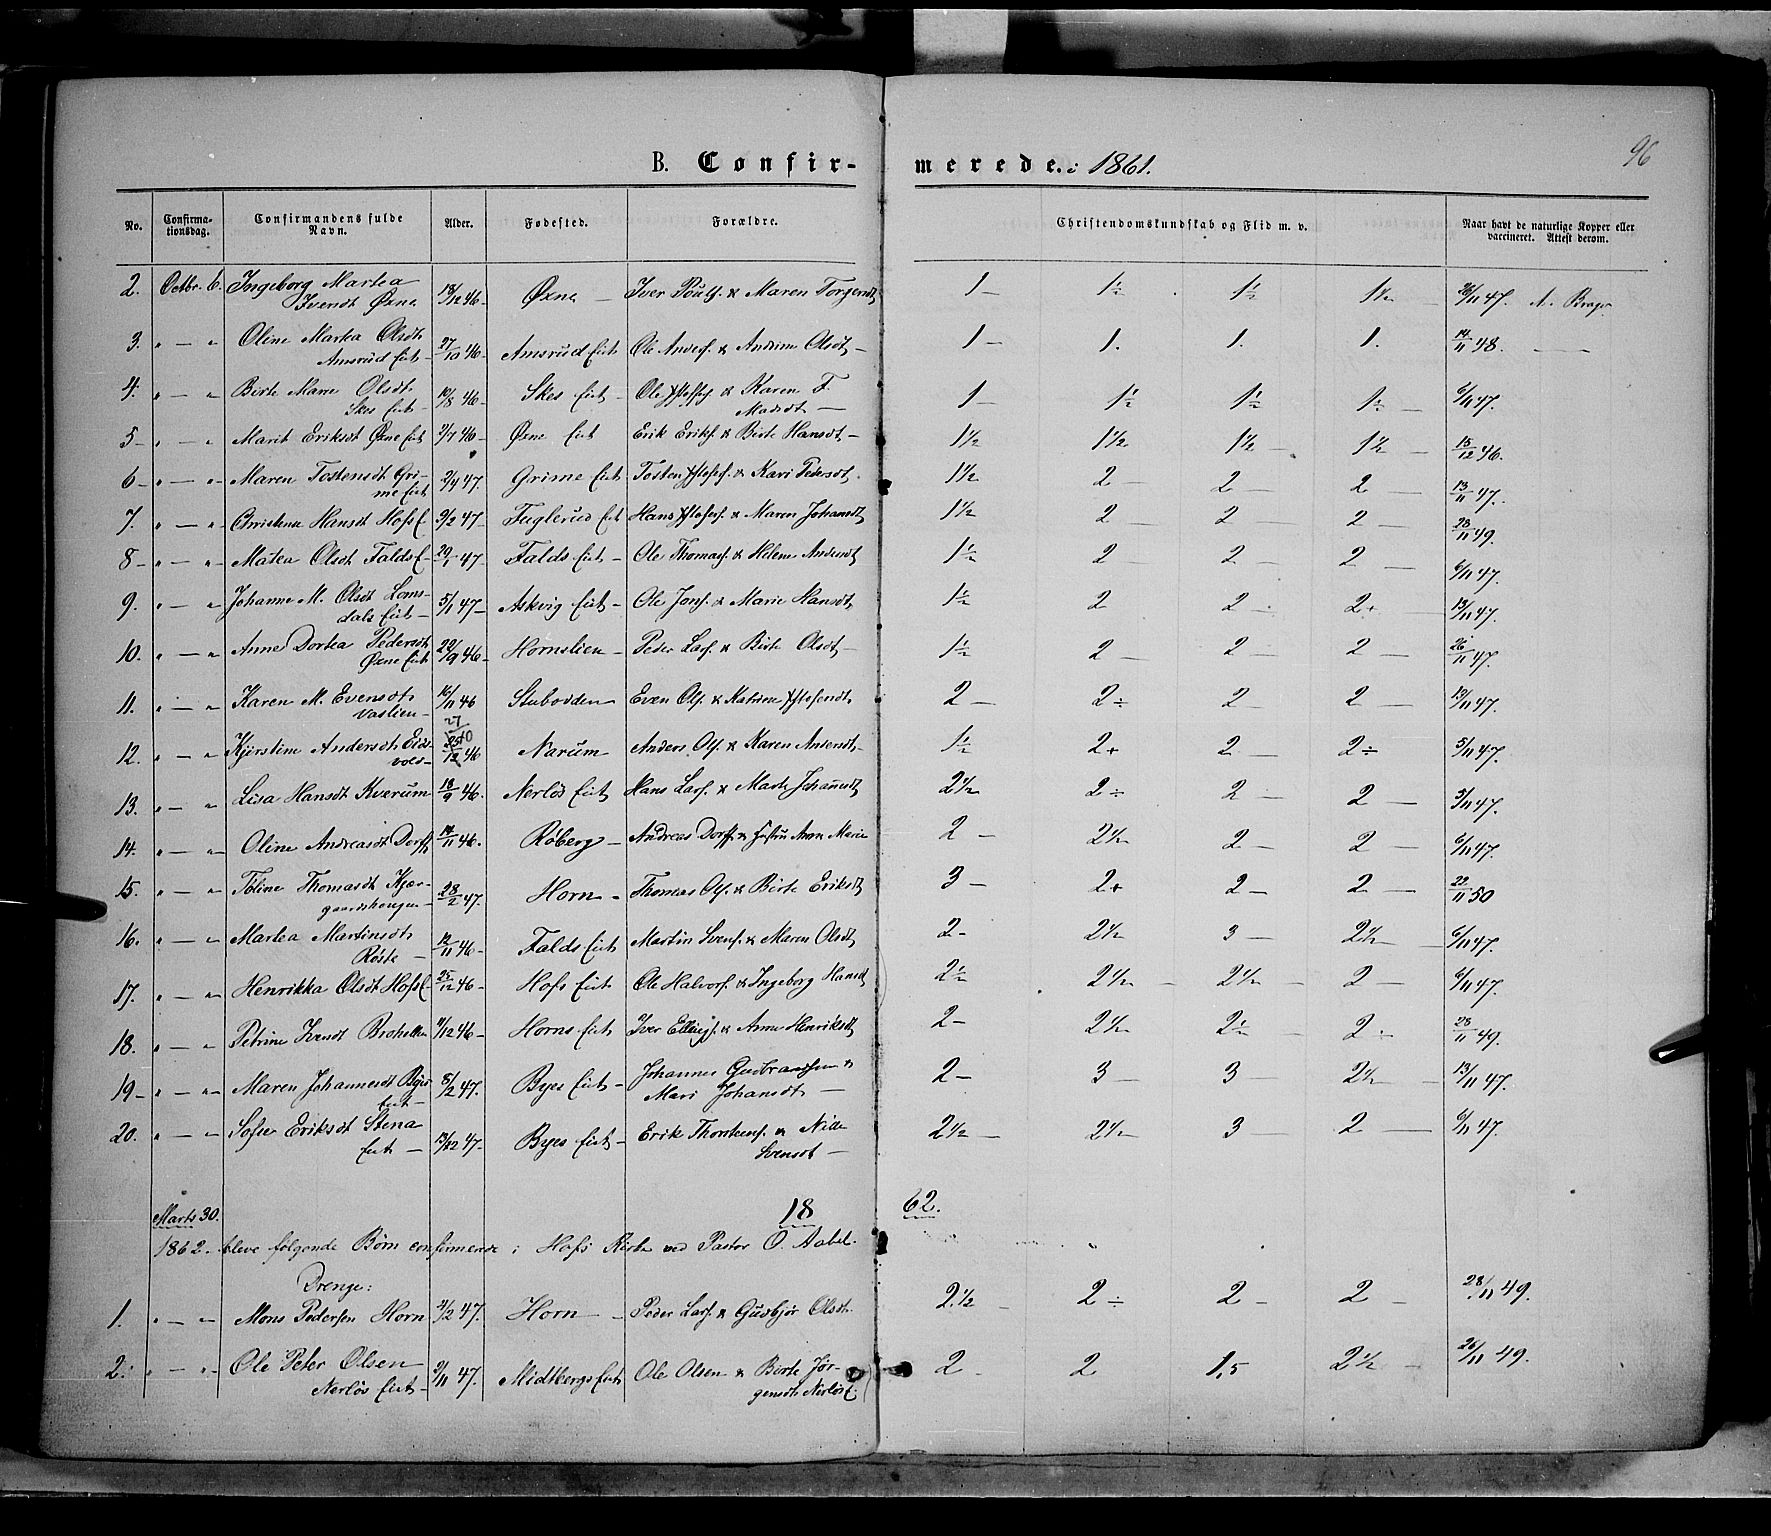 96
B. Confir- merede. i 1861.
No. Confirma-tionsdag. Confirmandens fulde Navn. Alder. Fødested. Forældre. Christendomskundskab og Flid m. v. Naar havt de naturlige Kopper eller vaccineret. Attest derom.
2. Octbr. 6. Ingeborg Martea 18/12 46 - Øxna - Iver Poulf. & Maren Torgersdt, 1 - 1½ 1½ 1½ - 26/11 47. A. Brager
Iversdt Øxna
3. " — " Oline Martea Olsdt, 27/10 46 - Amsrud Eiet - Ole Andersf. & Andrine Olsdt, - 1 - 1. 1. 1. 14/11 48. —
Amsrud Eiet -
4. " — " Birte Marie Olsdt, 10/8 46 - Skes Eiet - Ole & Karen F. 1 - 1½ 1½ 1½ - 6/11 47.
Skes Eiet - Madsdt —
5 - " — " Marit Eriksdt Øxne Eiet 2/7 46 - Øxne Eiet Erik Eriksf. & Birte Hansdt - 1½ 1½ 1½ - 1½ - 15/12 46.
6 - " — " Maren Tostensdt Gri- 2/4 47. Grime Eiet Tosten & Kari Pedersdt. 1½ 2 - 2 - 2 - 13/11 47.
me Eiet
7. " — " Christena Hansdt Hofs E. 9/2 47 - Fuglerud Eiet Hans & Maren Johansdt, 1½ 2 - 2 2 - 28/11 49.
8 - " — " Matea Olsdt Falds E. 29/1 47 - Falds Eiet - Ole Thomasf. & Helene Andersdt 1½ 2 2 - 2 - 6/11 47.
9. " — " Johanne M. Olsdt Loms- 5/1 47 - Askvig Eiet - Ole Jonsf. & Marie Hansdt, 1½ 2 2 - 2+ 13/11 47.
dals Eiet -
10. " — " Anne Dortea Pedersdt 22/9 46 - Hornslien - Peder Larsf. & Birte Olsdt, - 1½ 2 - 2 - 2 - 26/11 47.
Øxne Eiet
11. " — " Karen M. Evensdt, 16/11 46 Stubødden - Even Olsf. & 2 - 2÷ 2 - 2 - 13/11 47.
Vaslien -
12. " — " Kjerstine Andersdt Eids- 27/10 46 Narum Anders Olsf. & Karen Ansensdt, - 1½ 2+ 2 - 2÷ 5/11 47.
vold - 25/12
13. " — " Lisa Hansdt Kverum 18/9 46. Nerlös Eiet Hans Larsf. & Marte Johansdt 2½ 2÷ 2 - 2 - 5/11 47.
14. " — " Oline Andreasdt Dorff 14/11 46. Røberg - Andreas Dorff & Hustru Anne Marie 2 - 2½ 2 - 2 - 6/11 47.
15. " — " Toline Thomasdt Kjær- 28/2 47. Horn - Thomas Olsf. & Birte Eriksdt 3 - 2+ 2 - 2 - 22/11 50
gaardshougen -
16. " — " Martea Martinsdt, 12/11 46 - Falds Eiet Martin Svensf. & Maren Olsdt, 2 - 2½ 3 - 2½ - 6/11 47.
Röste -
17. " — " Henrikka Olsdt Hofs E. 25/12 46 - Hofs Eiet Ole Halvorsf. & Ingeborg Hansdt 2½ 2½ - 2½ - 2 - 6/11 47.
18. " — " Petrine Iversdt Brohellen 1/12 46 - Horns Eiet, Iver Ellingsf. & Anne Henriksdt 2 - 2½ 2½ 2÷ 28/11 49.
19 - " — " Maren Johannesdt Byes 8/2 47. Byes Eiet - Johannes Gudbrandsen & 2 - 3 - 3 - 2½ - 13/11 47.
Eiet - Mari Johansdt, —
20. " — " Sofie Eriksdt Stena 13/2 47. Byes Eiet - Erik Thorstensf. & 2½ - 2½ 3 - 2 — 6/11 47.
Eiet — Svensdt —
18 62.
Marts 30.
1862. bleve følgende Børn confirmerede i Hofs Kirke ved Pastor O. Aabel.
Drenge:
1. " — " Mons Pedersen Horn 4/2 47. Horn - Peder Larsf. & Gudbjør Olsdt. 2½ - 2÷ 2 - 2 - 28/11 49.
2. " — " Ole Peter Olsen 2/11 47. Midtbergs Eiet Ole Olsen & Birte Jør- 2 - 2 1,5 2½ - 26/11 49.
Nerlös Eiet - gensdt, Nerlös E.